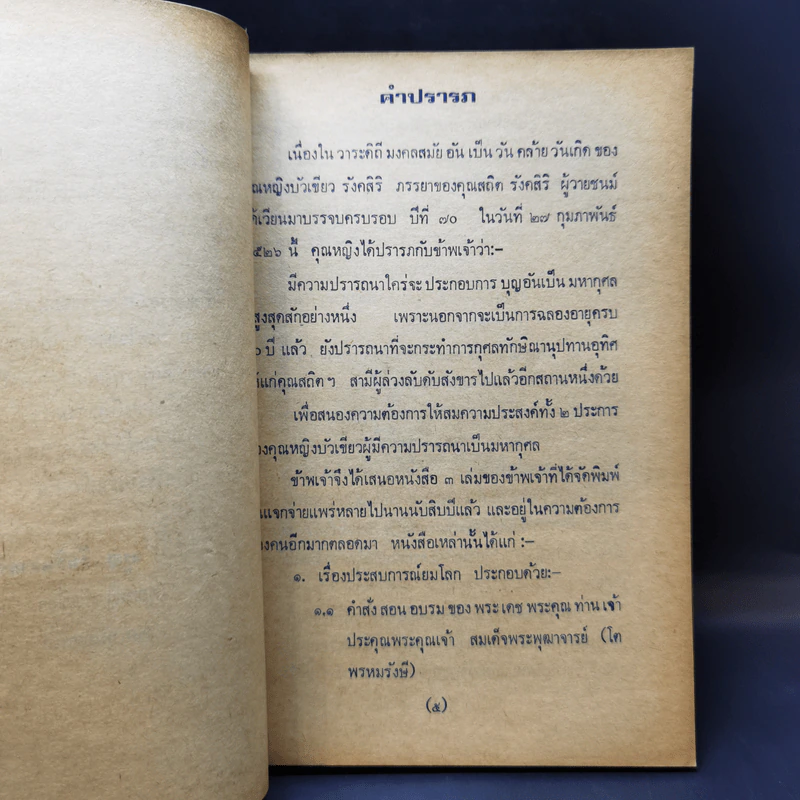 คำปรารภ
เนื่องใน วาระดิถี มงคลสมัย อัน เป็น วัน คล้าย วันเกิด ของ
ณหญิงบัวเขียว รังคสิริ ภรรยาของคุณสถิต รังคสิริ ผู้วายชนม์
ด้เวียนมาบรรจบครบรอบ ปีที่ ๗๐ ในวันที่ ๒๗ กุมภาพันธ์
๕๒๖ นี้ คุณหญิงได้ปรารภกับข้าพเจ้าว่า:-
มีความปรารถนาใคร่จะ ประกอบการ บุญอันเป็น มหากุศล
สูงสุดสักอย่างหนึ่ง เพราะนอกจากจะเป็นการฉลองอายุครบ
๐ ปี แล้ว ยังปรารถนาที่จะกระทำการกุศลทักษิณานุปทานอุทิศ
ห้แก่คุณสถิตฯ สามีผู้ล่วงลับดับสังขารไปแล้วอีกสถานหนึ่งด้วย
เพื่อสนองความต้องการให้สมความประสงค์ทั้ง ๒ ประการ
องคุณหญิงบัวเขียวผู้มีความปรารถนาเป็นมหากุศล
ข้าพเจ้าจึงได้เสนอหนังสือ ๓ เล่มของข้าพเจ้าที่ได้จัดพิมพ์
แจกจ่ายแพร่หลายไปนานนับสิบปีแล้ว และอยู่ในความต้องการ
องคนอีกมากตลอดมา หนังสือเหล่านั้นได้แก่ :-
๑. เรื่องประสบการณ์ยมโลก ประกอบด้วย:-
๑.๑ คำสั่ง สอน อบรม ของ พระ เดช พระคุณ ท่าน เจ้า
ประคุณพระคุณเจ้า สมเด็จพระพุฒาจารย์ (โต
พรหมรังษี)
(๕)